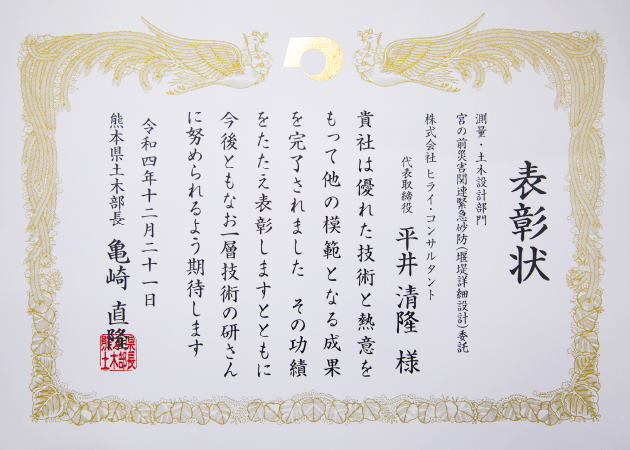 表彰状
測量・土木設計部門
宮の前災害関連緊急砂防(堰堤詳細設計)委託
株式会社 ヒライ・コンサルタント
代表取締役 平井 清隆 様
貴社は優れた技術と熱意を
もって他の模範となる成果
を完了されました その功績
をたたえ表彰しますとともに
今後ともなお一層技術の研さん
に努められるよう期待します
令和四年十二月二十一日
熊本県土木部長 亀崎 直隆
熊本県土木部長